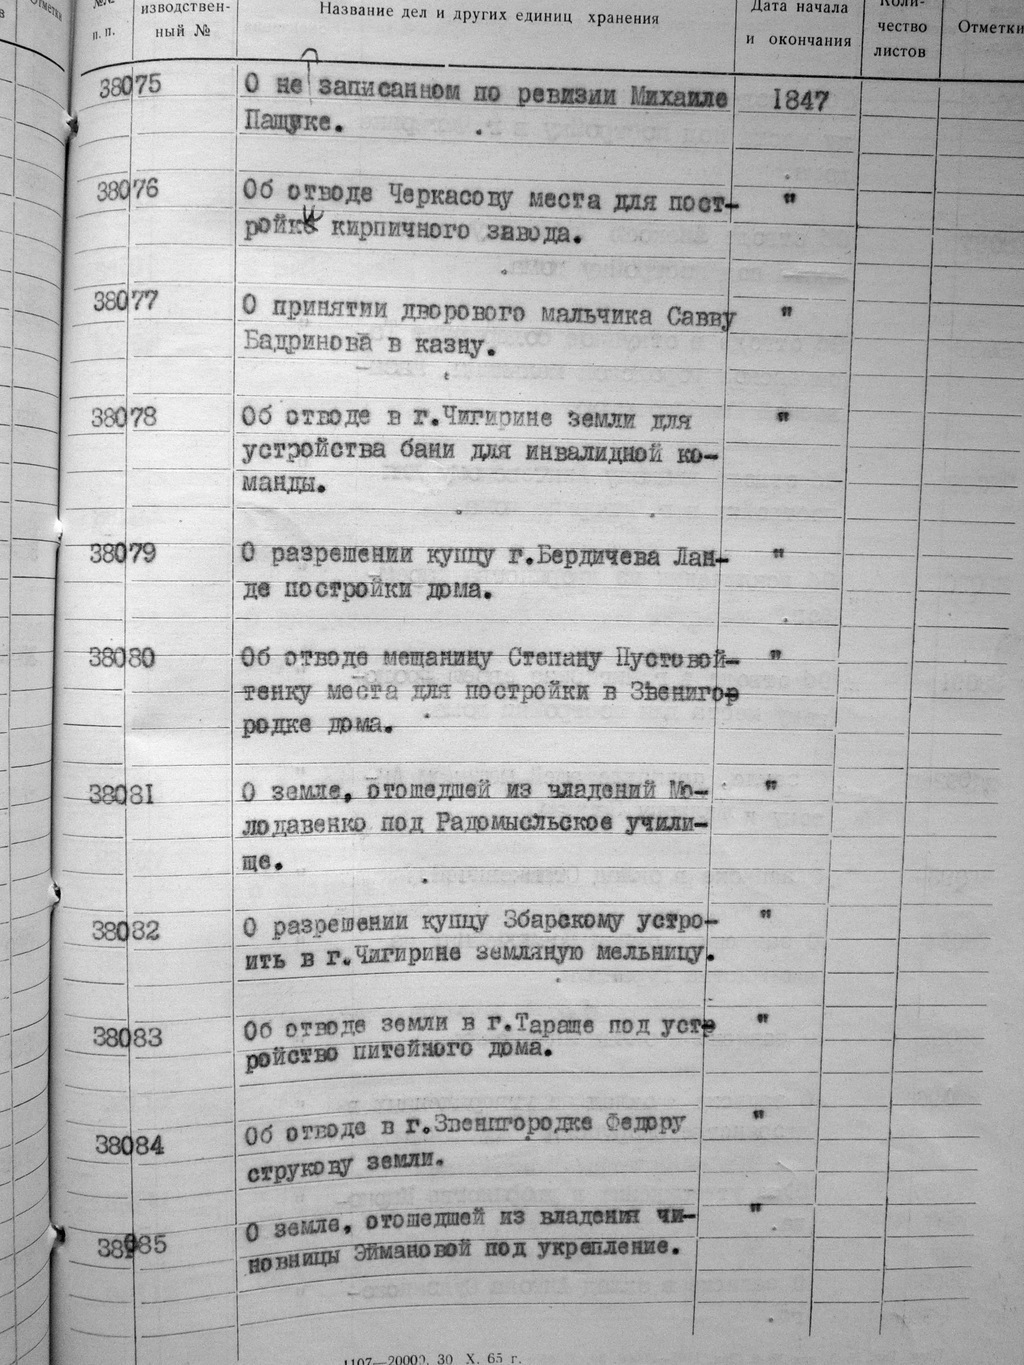 Отметки
№№ изводствен- Название дел и других единиц хранения Дата начала Коли-
п. п. ный № и окончания чество Отметки
листов
38075 О не записанном по ревизии Михаиле 1847
Пащуке.
38076 Об отводе Черкасову места для пост- "
ройки кирпичного завода.
38077 О принятии дворового мальчика Савву "
Бадринова в казну.
38078 Об отводе в г.Чигирине земли для "
устройства бани для инвалидной ко-
манды.
38079 О разрешении купцу г.Бердичева Лан- "
де постройки дома.
38080 Об отводе мещанину Степану Пустовой- "
тенку места для постройки в Звениго-
родке дома.
38081 О земле, отошедшей из владений Мо- "
лодавенко под Радомысльское учили-
ще.
38082 О разрешении купцу Збарскому устро- "
ить в г.Чигирине земляную мельницу.
38083 Об отводе земли в г.Тараще под уст- "
ройство питейного дома.
38084 Об отводе в г.Звенигородке Федору "
струкову земли.
38085 О земле, отошедшей из владения чи- "
новницы Эймановой под укрепление.
1107—20000. 30 X. 65 г.